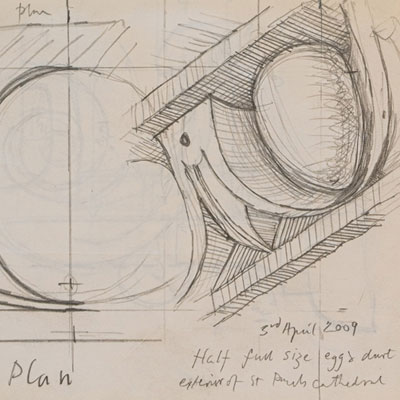 plan
3rd April 2009
Half full size eggs dart
exterior of St Pauls Cathedral
Plan